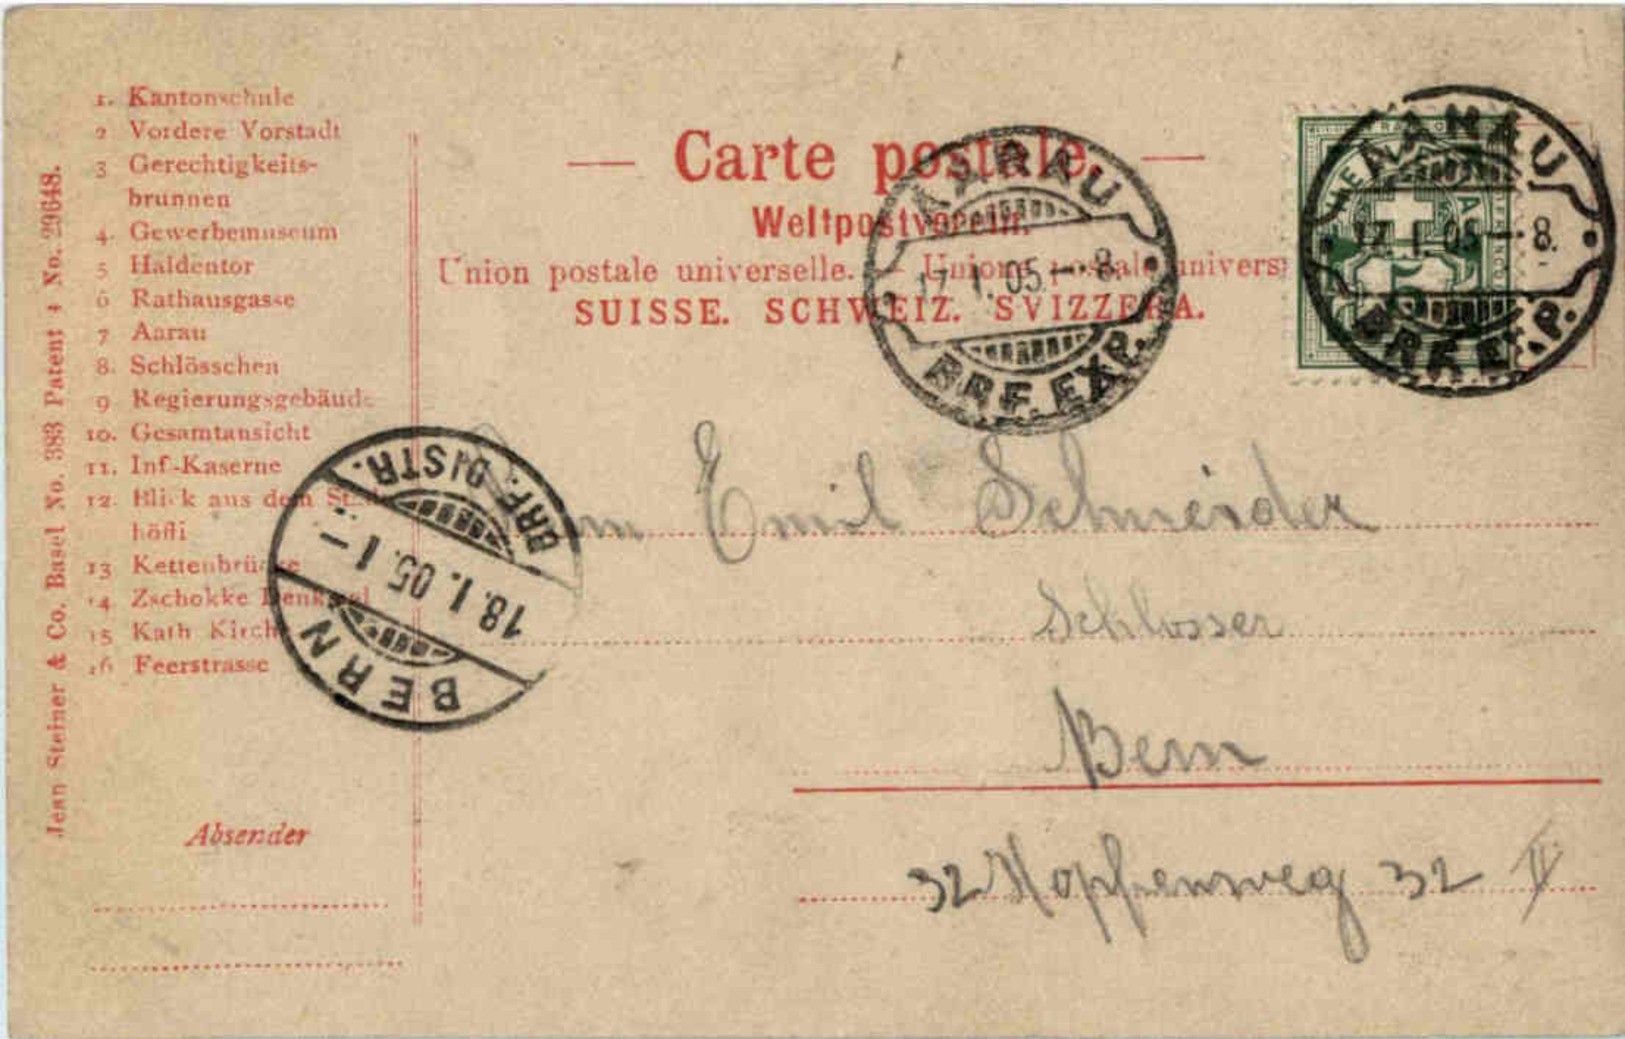 Jean Steiner & Co. Basel No. 383 Patent + No. 29648.
1. Kantonschule
2 Vordere Vorstadt
3 Gerechtigkeits-
brunnen
4. Gewerbemuseum
5 Haldentor
6 Rathausgasse
7 Aarau
8. Schlösschen
9 Regierungsgebäude
10. Gesamtansicht
11. Inf-Kaserne
12. Blick aus dem
höfli
13 Kettenbrücke
14 Zschokke Denkmal
15 Kath Kirche
16 Feerstrasse
Absender
— Carte postale. —
Weltpostverein.
Union postale universelle. — Unione postale univers
SUISSE. SCHWEIZ. SVIZZERA.
AARAU
17. I. 05. — 8.
BRF. EXP.
AARAU
17. I. 05 — 8.
BRF. EXP.
5
BRF. DISTR.
18. I. 05. 1 —
BERN
Emil Schneider
Schlosser
Bern
32 Hopfenweg 32 II